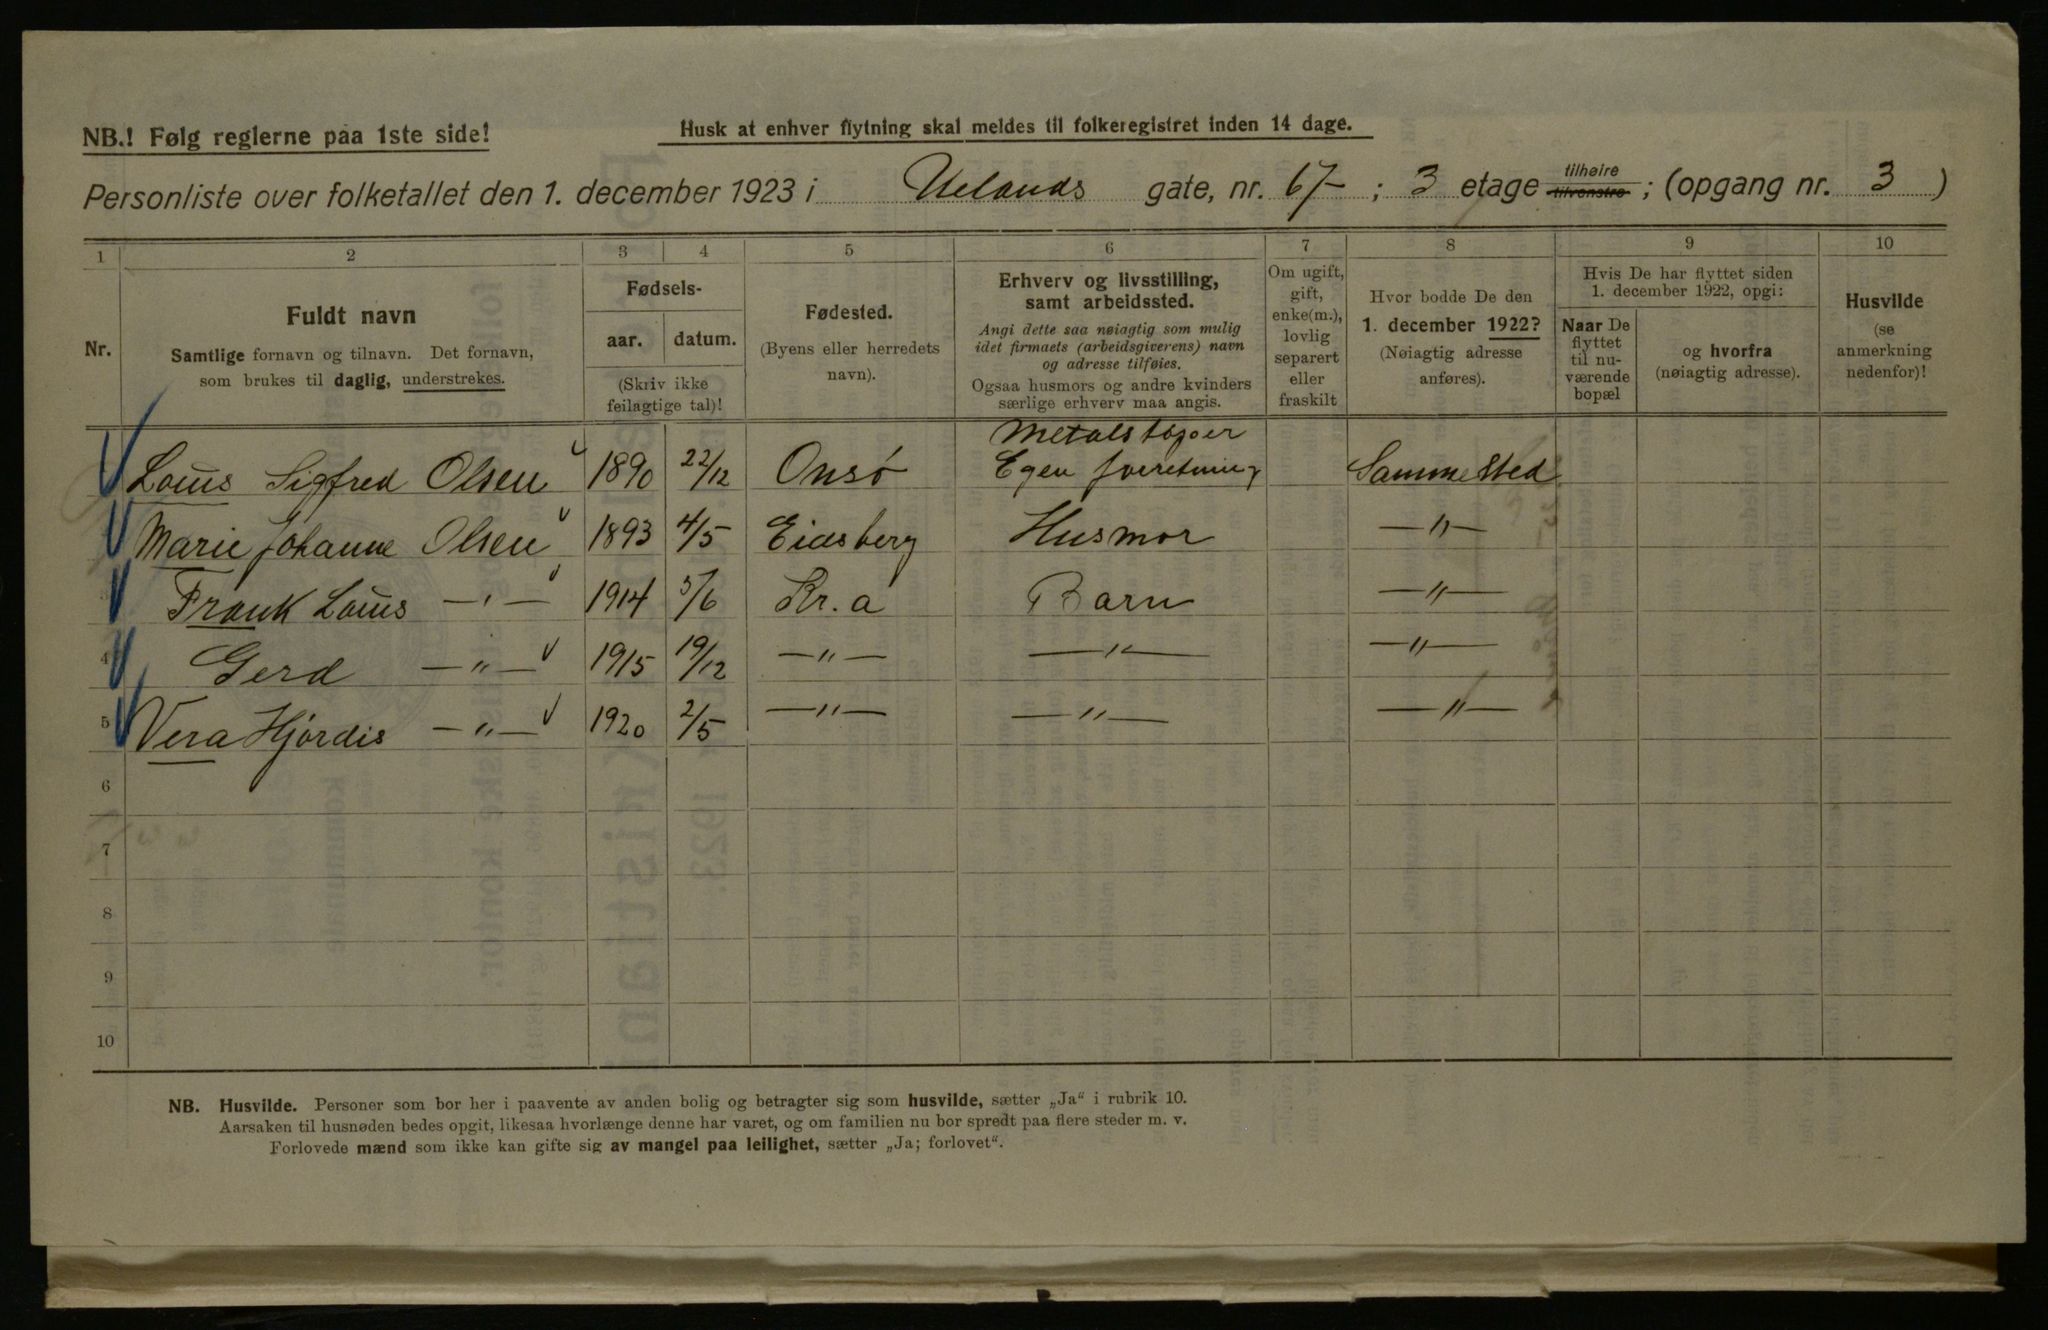 NB.! Følg reglerne paa 1ste side!
Husk at enhver flytning skal meldes til folkeregistret inden 14 dage.
Personliste over folketallet den 1. december 1923 i Uelands gate, nr. 67 ; 3 etage tilhøire tilvenstre ; (opgang nr. 3 )
1 2 3 4 5 6 7 8 9 10
Nr.
Fuldt navn
Samtlige fornavn og tilnavn. Det fornavn,
som brukes til daglig, understrekes.
Fødsels-
aar. datum.
(Skriv ikke
feilagtige tal)!
Fødested.
(Byens eller herredets
navn).
Erhverv og livsstilling,
samt arbeidssted.
Angi dette saa nøiagtig som mulig
idet firmaets (arbeidsgiverens) navn
og adresse tilføies.
Ogsaa husmors og andre kvinders
særlige erhverv maa angis.
Om ugift,
gift,
enke(m.),
lovlig
separert
eller
fraskilt
Hvor bodde De den
1. december 1922?
(Nøiagtig adresse
anføres).
Hvis De har flyttet siden
1. december 1922, opgi:
Naar De
flyttet
til nu-
værende
bopæl
og hvorfra
(nøiagtig adresse).
Husvilde
(se
anmerkning
nedenfor)!
Metalstøper
Louis Sigfred Olsen 1890 22/12 Onsø Egen forretning Samme sted
Marie Johanne Olsen 1893 4/5 Eidsberg Husmor —"—
Frank Louis —"— 1914 5/6 Kr.a Barn —"—
4 Gerd —"— 1915 19/12 —"— —"— —"—
5 Vera Hjørdis —"— 1920 2/5 —"— —"— —"—
6
7
8
9
10
NB. Husvilde. Personer som bor her i paavente av anden bolig og betragter sig som husvilde, sætter „Ja“ i rubrik 10.
Aarsaken til husnøden bedes opgit, likesaa hvorlænge denne har varet, og om familien nu bor spredt paa flere steder m. v.
Forlovede mænd som ikke kan gifte sig av mangel paa leilighet, sætter „Ja; forlovet“.